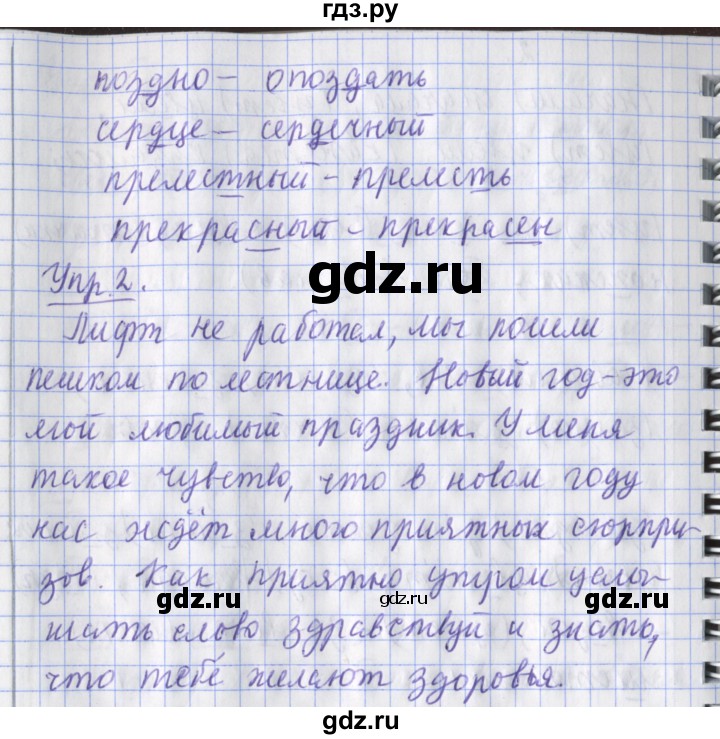 гдз.ру
поздно – опоздать
сердце – сердечный
прелестный – прелесть
прекрасный – прекрасен
Упр. 2.
gdz.ru
Лифт не работал, мы пошли
пешком по лестнице. Новый год – это
мой любимый праздник. У меня
такое чувство, что в новом году
нас ждёт много приятных сюрпри-
зов. Как приятно утром услы-
gdz.ru
gdz.ru
gdz.ru
шать слово здравствуй и знать,
что тебе желают здоровья.
gdz.ru